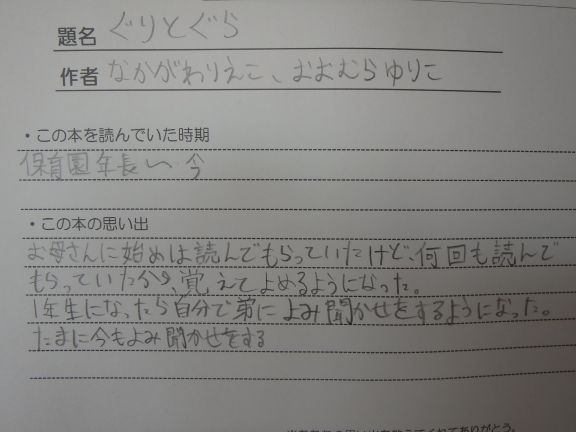 題名 ぐりとぐら
作者 なかがわりえこ、おおむらゆりこ
・この本を読んでいた時期
保育園年長〜今
・この本の思い出
お母さんに始めは読んでもらっていたけど、何回も読んで
もらっていたから、覚えてよめるようになった。
1年生になったら自分で弟によみ聞かせをするようになった。
たまに今もよみ聞かせをする
てくれてありがとう。